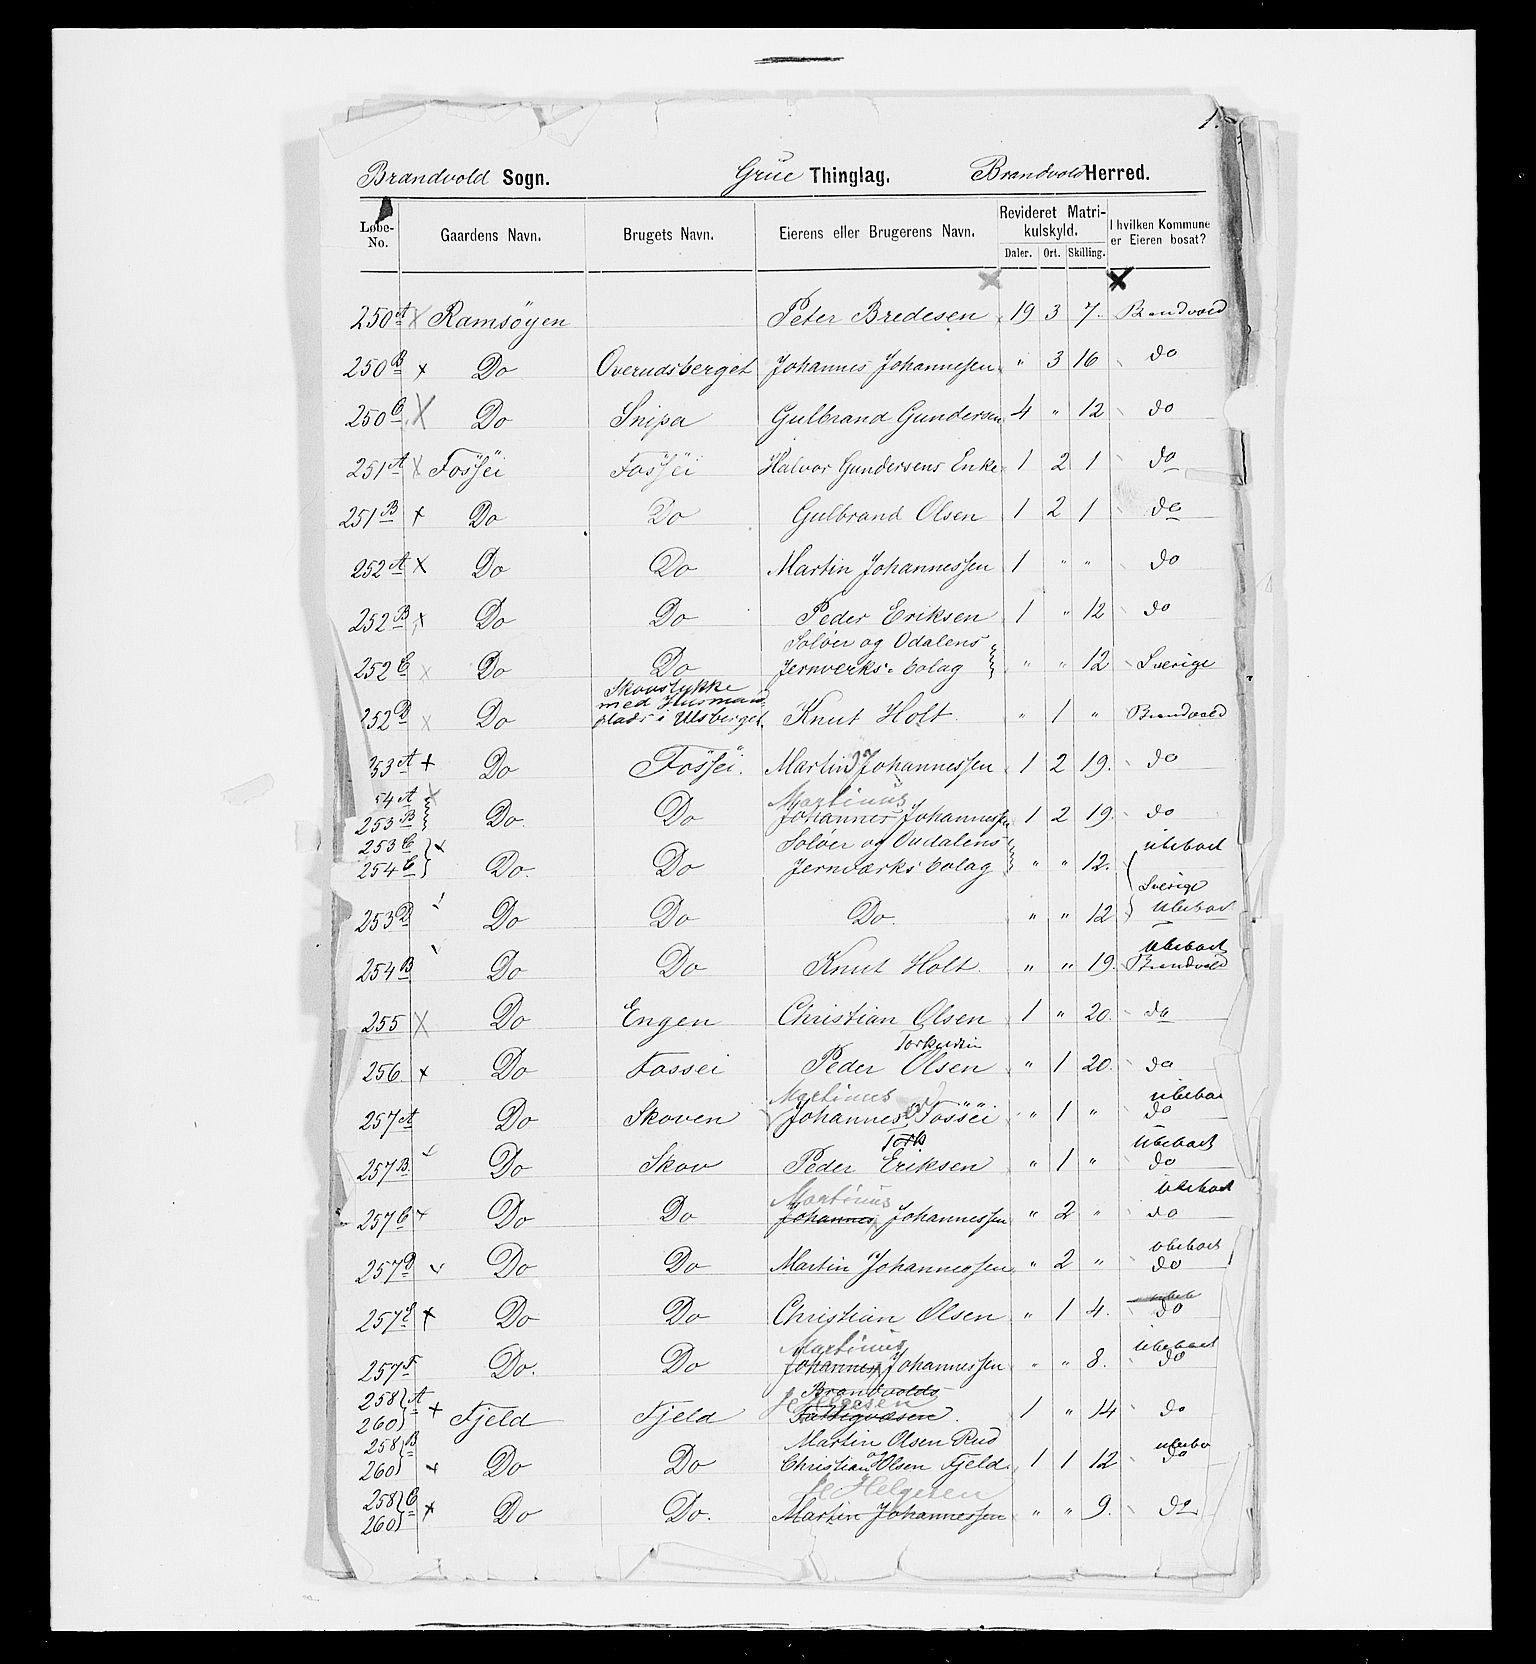 1.
Brandvold Sogn. Grue Thinglag. Brandvold Herred.
Løbe-No. Gaardens Navn. Brugets Navn. Eierens eller Brugerens Navn. Revideret Matri-kulskyld. I hvilken Kommune er Eieren bosat?
Daler. Ort. Skilling.
250 A Ramsöyen Peter Bredesen 19 3 7. Brandvold
250 B Do Overudsberget Johannes Johannesen " 3 16 do
250 C Do Snipa Gulbrand Gundersen 4 " 12 do
251 A Fossei Fossei Halvor Gundersens Enke 1 2 1 do
251 B Do Do Gulbrand Olsen 1 2 1 do
252 A Do Do Martin Johannessen 1 " " do
252 B Do Do Peder Eriksen 1 " 12 do
Soløer og Odalens
252 C Do Do Jernverks-bolag " " 12 Sverige
Skovstykke
med Husmands
252 D Do plads i Ulsberget Knut Holt " 1 " Brandvold
253 A Do Fossei. Martin Johannessen 1 2 19. do
54 A Martinus
253 B Do. Do Johannes Johannessen 1 2 19. do
253 C Soløer og Oudalens ubeboet
254 C Do. Do Jernværks bolag " " 12.
Sverige
253 D Do Do Do. " " 12 Ubeboet
Ubeboet
254 B Do Do Knut Holt. " " 19. Brandvold
255 Do Engen Christian Olsen 1 " 20. do
256 Do Fossei Peder Olsen " 1 20. do
Martinus ubeboet
257 A Do Skoven Johannes Fössëi " 1 " do
Ubeboet
257 B. Do Skov Peder Eriksen " 1 " do
Martinus ubeboet
257 C Do Do Johannes Johannessen " 2 " do
ubeboet
257 D Do Do Martin Johannessen " 2 " do
257 E Do Do Christian Olsen " 1 4. do
Martinus ubeboet
257 F Do. Do Johannes Johannessen " " 8. do
258 A Brandvolds
Helgesen
260 Fjeld Fjeld Fattigvæsen. 1 " 14 do
258 B Martin Olsen Rud
260 Do Do Christian og Olsen Fjeld. 1 1 12 do
258 C Helgesen
260 Do Do. Martin Johannessen " " 9. do